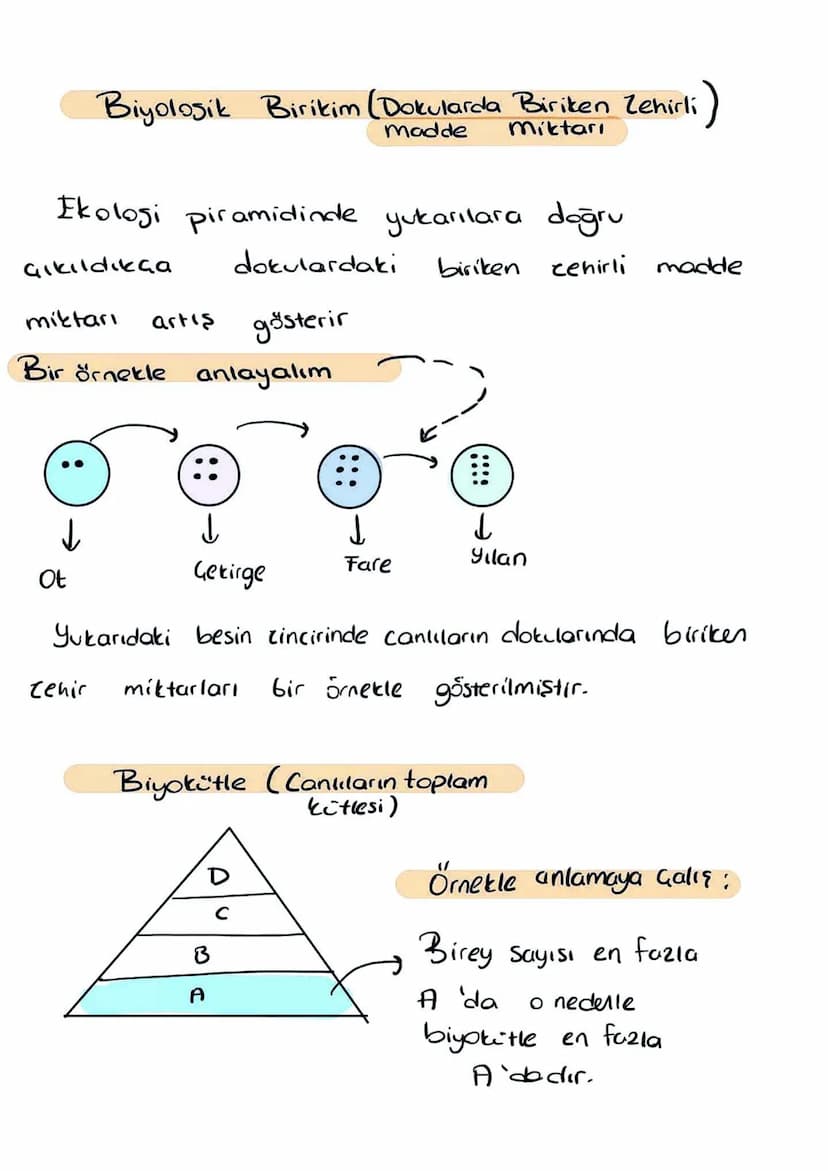 Biyolojik Birikim (Dokularda Biriken Zehirli
madde miktarı)
Ekoloji piramidinde yukarılara doğru
çıkıldıkça dokulardaki biriken zehirli madde
miktarı artış gösterir
Bir örnekle anlayalım
Ot
Çekirge
Fare
Yılan
Yukarıdaki besin zincirinde canlıların dokularında biriken
zehir miktarları bir örnekle gösterilmiştir.
Biyokütle (Canlıların toplam
kütlesi)
D
C
B
A
Örnekle anlamaya çalış :
Birey sayısı en fazla
A 'da o nedenle
biyokütle en fazla
A'dadır.